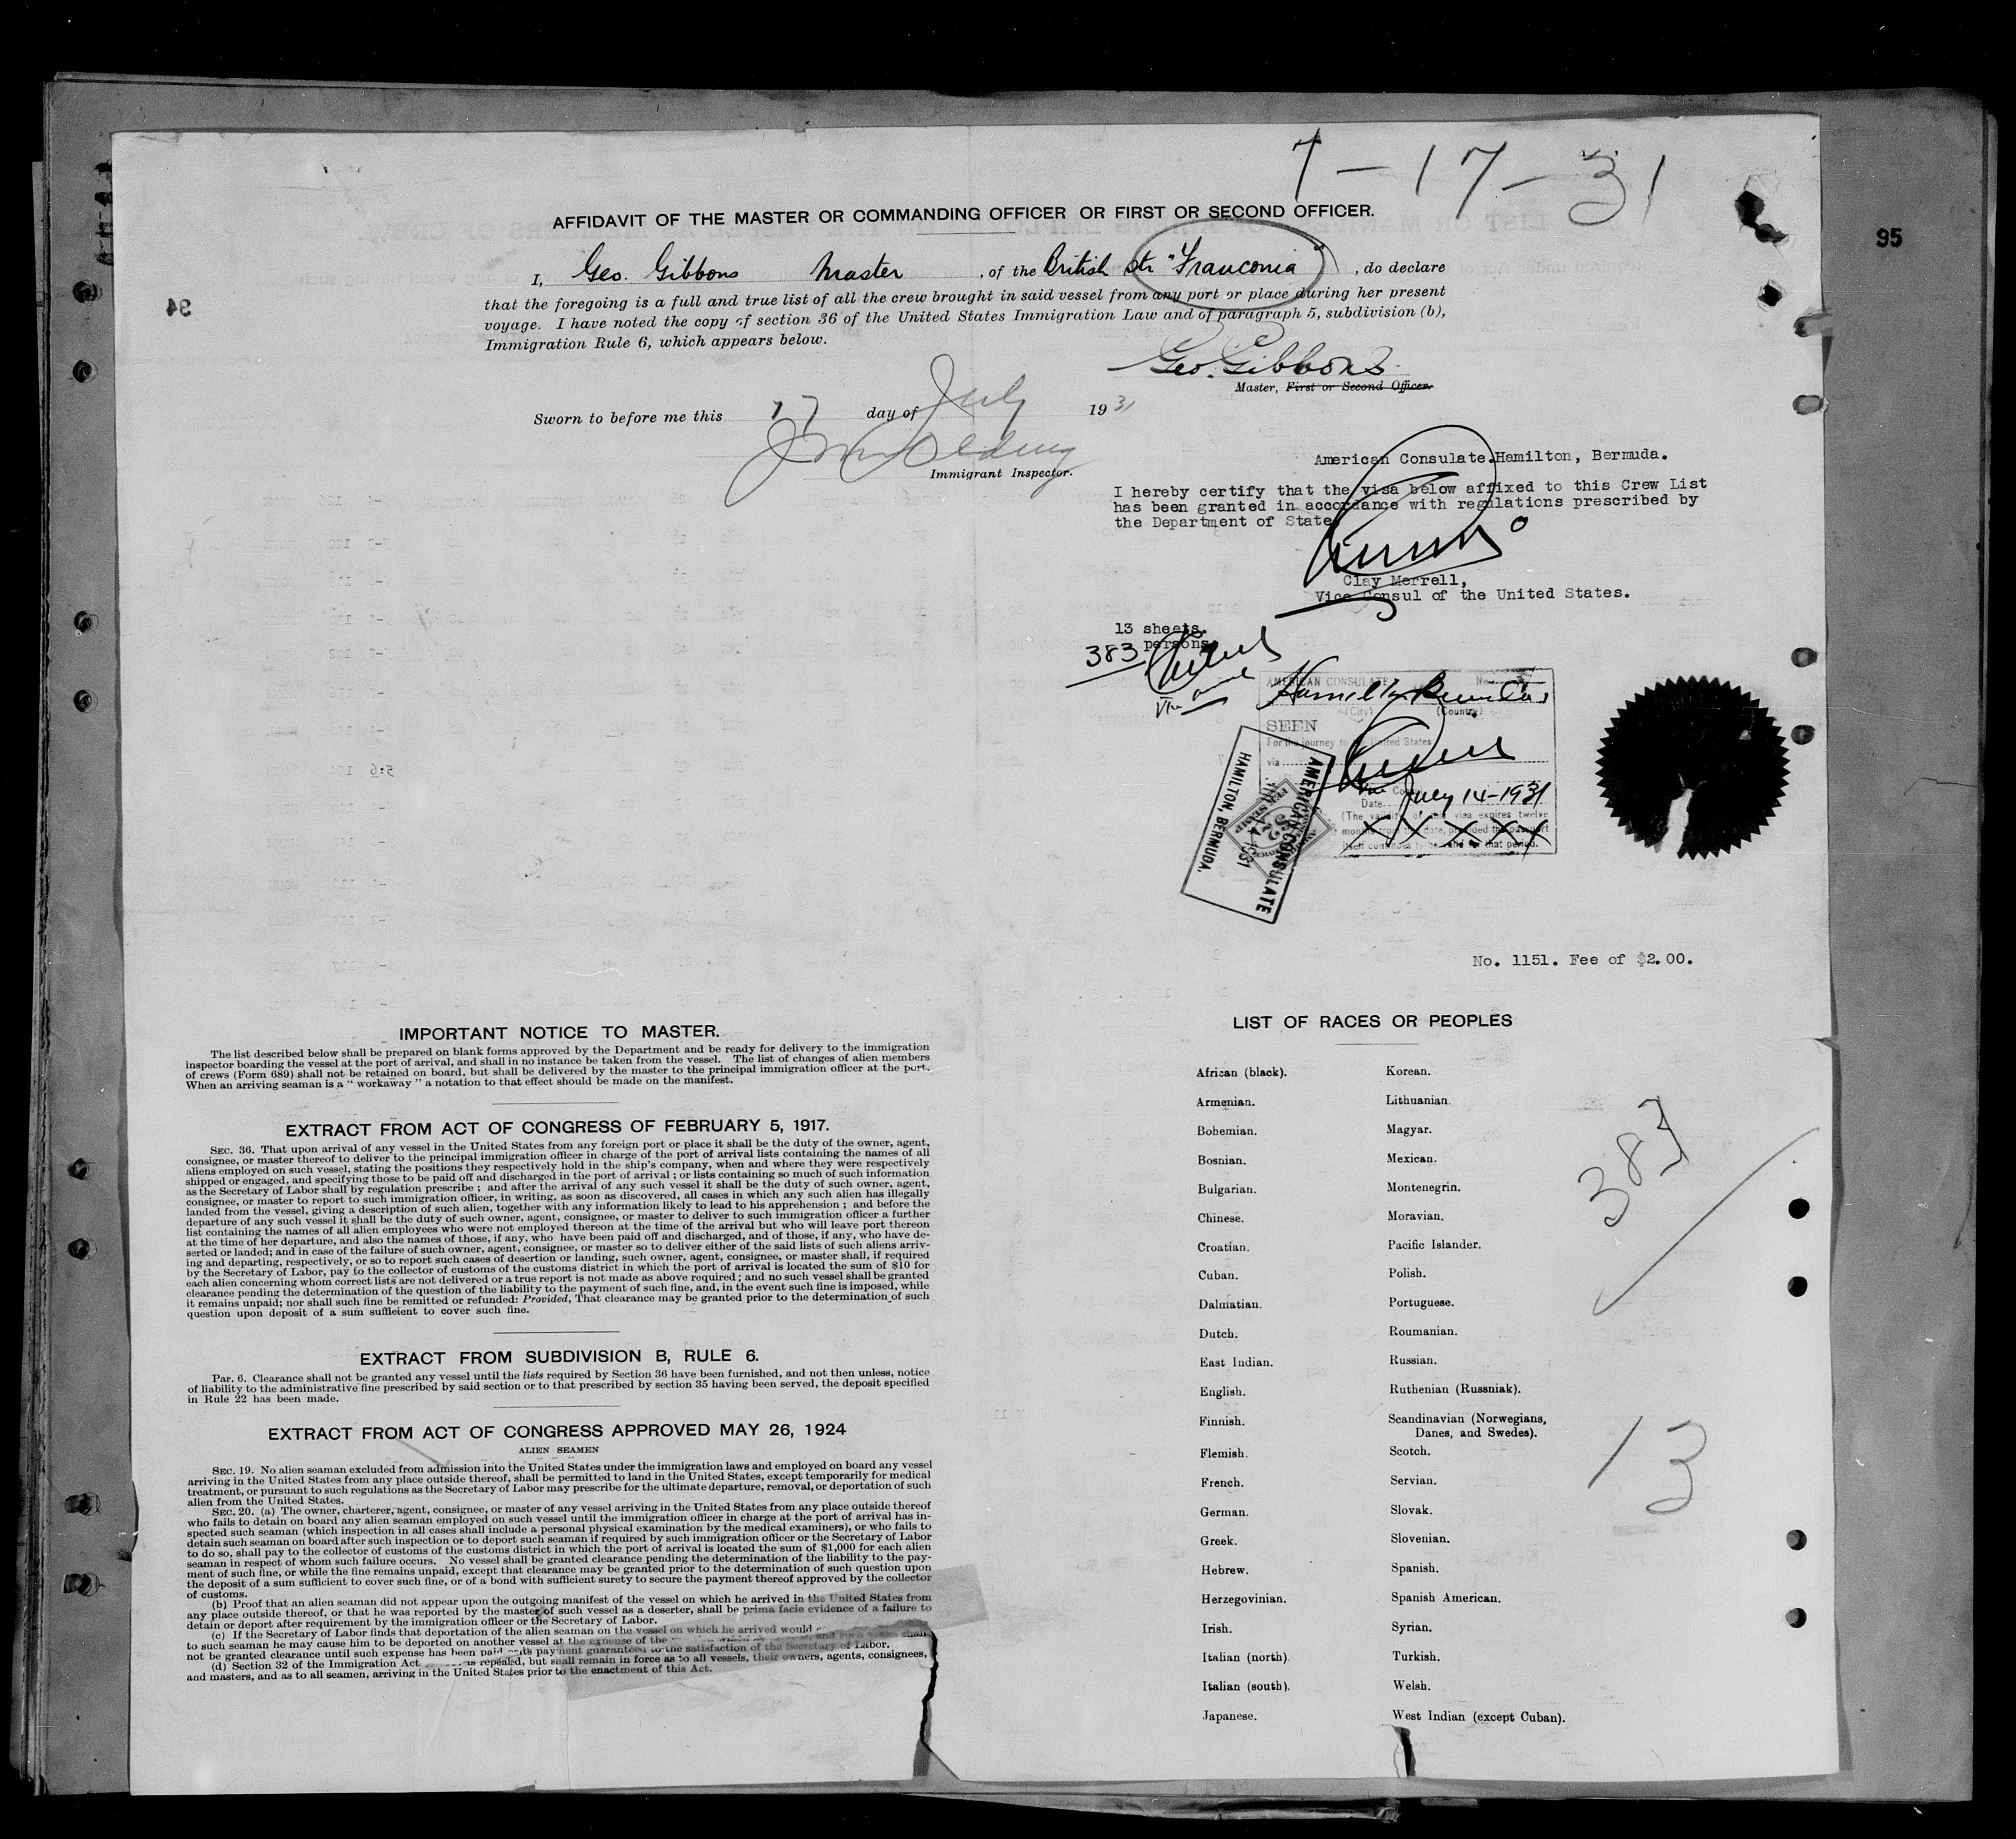 7-17-31
95
34
AFFIDAVIT OF THE MASTER OR COMMANDING OFFICER OR FIRST OR SECOND OFFICER.
I, Geo. Gibbons Master, of the British Str "Franconia", do declare
that the foregoing is a full and true list of all the crew brought in said vessel from any port or place during her present
voyage. I have noted the copy of section 36 of the United States Immigration Law and of paragraph 5, subdivision (b),
Immigration Rule 6, which appears below.
Geo. Gibbons
Master, First or Second Officer.
Sworn to before me this 17 day of July 1931
Immigrant Inspector.
American Consulate.Hamilton, Bermuda.
I hereby certify that the visa below affixed to this Crew List
has been granted in accordance with regulations prescribed by
the Department of State
Clay Merrell,
Vice Consul of the United States.
13 sheets.
383 persons
AMERICAN CONSULATE No.
Hamilton Bermuda
(City) (Country)
SEEN
For the journey to the United States
via
Date July 14-1931
(The validity of this visa expires twelve
months from this date, provided the passport
itself continues to be valid for that period.
XXXXXX
AMERICAN CONSULATE
HAMILTON, BERMUDA.
1931
No. 1151. Fee of $2.00.
IMPORTANT NOTICE TO MASTER.
The list described below shall be prepared on blank forms approved by the Department and be ready for delivery to the immigration
inspector boarding the vessel at the port of arrival, and shall in no instance be taken from the vessel. The list of changes of alien members
of crews (Form 689) shall not be retained on board, but shall be delivered by the master to the principal immigration officer at the port.
When an arriving seaman is a "workaway" a notation to that effect should be made on the manifest.
EXTRACT FROM ACT OF CONGRESS OF FEBRUARY 5, 1917.
SEC. 36. That upon arrival of any vessel in the United States from any foreign port or place it shall be the duty of the owner, agent,
consignee, or master thereof to deliver to the principal immigration officer in charge of the port of arrival lists containing the names of all
aliens employed on such vessel, stating the positions they respectively hold in the ship's company, when and where they were respectively
shipped or engaged, and specifying those to be paid off and discharged in the port of arrival; or lists containing so much of such information
as the Secretary of Labor shall by regulation prescribe; and after the arrival of any such vessel it shall be the duty of such owner, agent,
consignee, or master to report to such immigration officer, in writing, as soon as discovered, all cases in which any such alien has illegally
landed from the vessel, giving a description of such alien, together with any information likely to lead to his apprehension; and before the
departure of any such vessel it shall be the duty of such owner, agent, consignee, or master to deliver to such immigration officer a further
list containing the names of all alien employees who were not employed thereon at the time of the arrival but who will leave port thereon
at the time of her departure, and also the names of those, if any, who have been paid off and discharged, and of those, if any, who have de-
serted or landed; and in case of the failure of such owner, agent, consignee, or master so to deliver either of the said lists of such aliens arriv-
ing and departing, respectively, or so to report such cases of desertion or landing, such owner, agent, consignee, or master shall, if required
by the Secretary of Labor, pay to the collector of customs of the customs district in which the port of arrival is located the sum of $10 for
each alien concerning whom correct lists are not delivered or a true report is not made as above required; and no such vessel shall be granted
clearance pending the determination of the question of the liability to the payment of such fine, and, in the event such fine is imposed, while
it remains unpaid; nor shall such fine be remitted or refunded: Provided, That clearance may be granted prior to the determination of such
question upon deposit of a sum sufficient to cover such fine.
EXTRACT FROM SUBDIVISION B, RULE 6.
Par. 6. Clearance shall not be granted any vessel until the lists required by Section 36 have been furnished, and not then unless, notice
of liability to the administrative fine prescribed by said section or to that prescribed by section 35 having been served, the deposit specified
in Rule 22 has been made.
EXTRACT FROM ACT OF CONGRESS APPROVED MAY 26, 1924
ALIEN SEAMEN
SEC. 19. No alien seaman excluded from admission into the United States under the immigration laws and employed on board any vessel
arriving in the United States from any place outside thereof, shall be permitted to land in the United States, except temporarily for medical
treatment, or pursuant to such regulations as the Secretary of Labor may prescribe for the ultimate departure, removal, or deportation of such
alien from the United States.
SEC. 20. (a) The owner, charterer, agent, consignee, or master of any vessel arriving in the United States from any place outside thereof
who fails to detain on board any alien seaman employed on such vessel until the immigration officer in charge at the port of arrival has in-
spected such seaman (which inspection in all cases shall include a personal physical examination by the medical examiners), or who fails to
detain such seaman on board after such inspection or to deport such seaman if required by such immigration officer or the Secretary of Labor
to do so, shall pay to the collector of customs of the customs district in which the port of arrival is located the sum of $1,000 for each alien
seaman in respect of whom such failure occurs. No vessel shall be granted clearance pending the determination of the liability to the pay-
ment of such fine, or while the fine remains unpaid, except that clearance may be granted prior to the determination of such question upon
the deposit of a sum sufficient to cover such fine, or of a bond with sufficient surety to secure the payment thereof approved by the collector
of customs.
(b) Proof that an alien seaman did not appear upon the outgoing manifest of the vessel on which he arrived in the United States from
any place outside thereof, or that he was reported by the master of such vessel as a deserter, shall be prima facie evidence of a failure to
detain or deport after requirement by the immigration officer or the Secretary of Labor.
(c) If the Secretary of Labor finds that deportation of the alien seaman on the vessel on which he arrived would
to such seaman he may cause him to be deported on another vessel at the expense of the and such vessel shall
not be granted clearance until such expense has been paid or its payment guaranteed to the satisfaction of the Secretary of Labor.
(d) Section 32 of the Immigration Act is repealed, but shall remain in force as to all vessels, their owners, agents, consignees,
and masters, and as to all seamen, arriving in the United States prior to the enactment of this Act.
LIST OF RACES OR PEOPLES
African (black). Korean.
Armenian. Lithuanian.
Bohemian. Magyar.
Bosnian. Mexican.
Bulgarian. Montenegrin.
Chinese. Moravian.
Croatian. Pacific Islander.
Cuban. Polish.
Dalmatian. Portuguese.
Dutch. Roumanian.
East Indian. Russian.
English. Ruthenian (Russniak).
Finnish. Scandinavian (Norwegians,
Danes, and Swedes).
Flemish. Scotch.
French. Servian.
German. Slovak.
Greek. Slovenian.
Hebrew. Spanish.
Herzegovinian. Spanish American.
Irish. Syrian.
Italian (north). Turkish.
Italian (south). Welsh.
Japanese. West Indian (except Cuban).
383
13